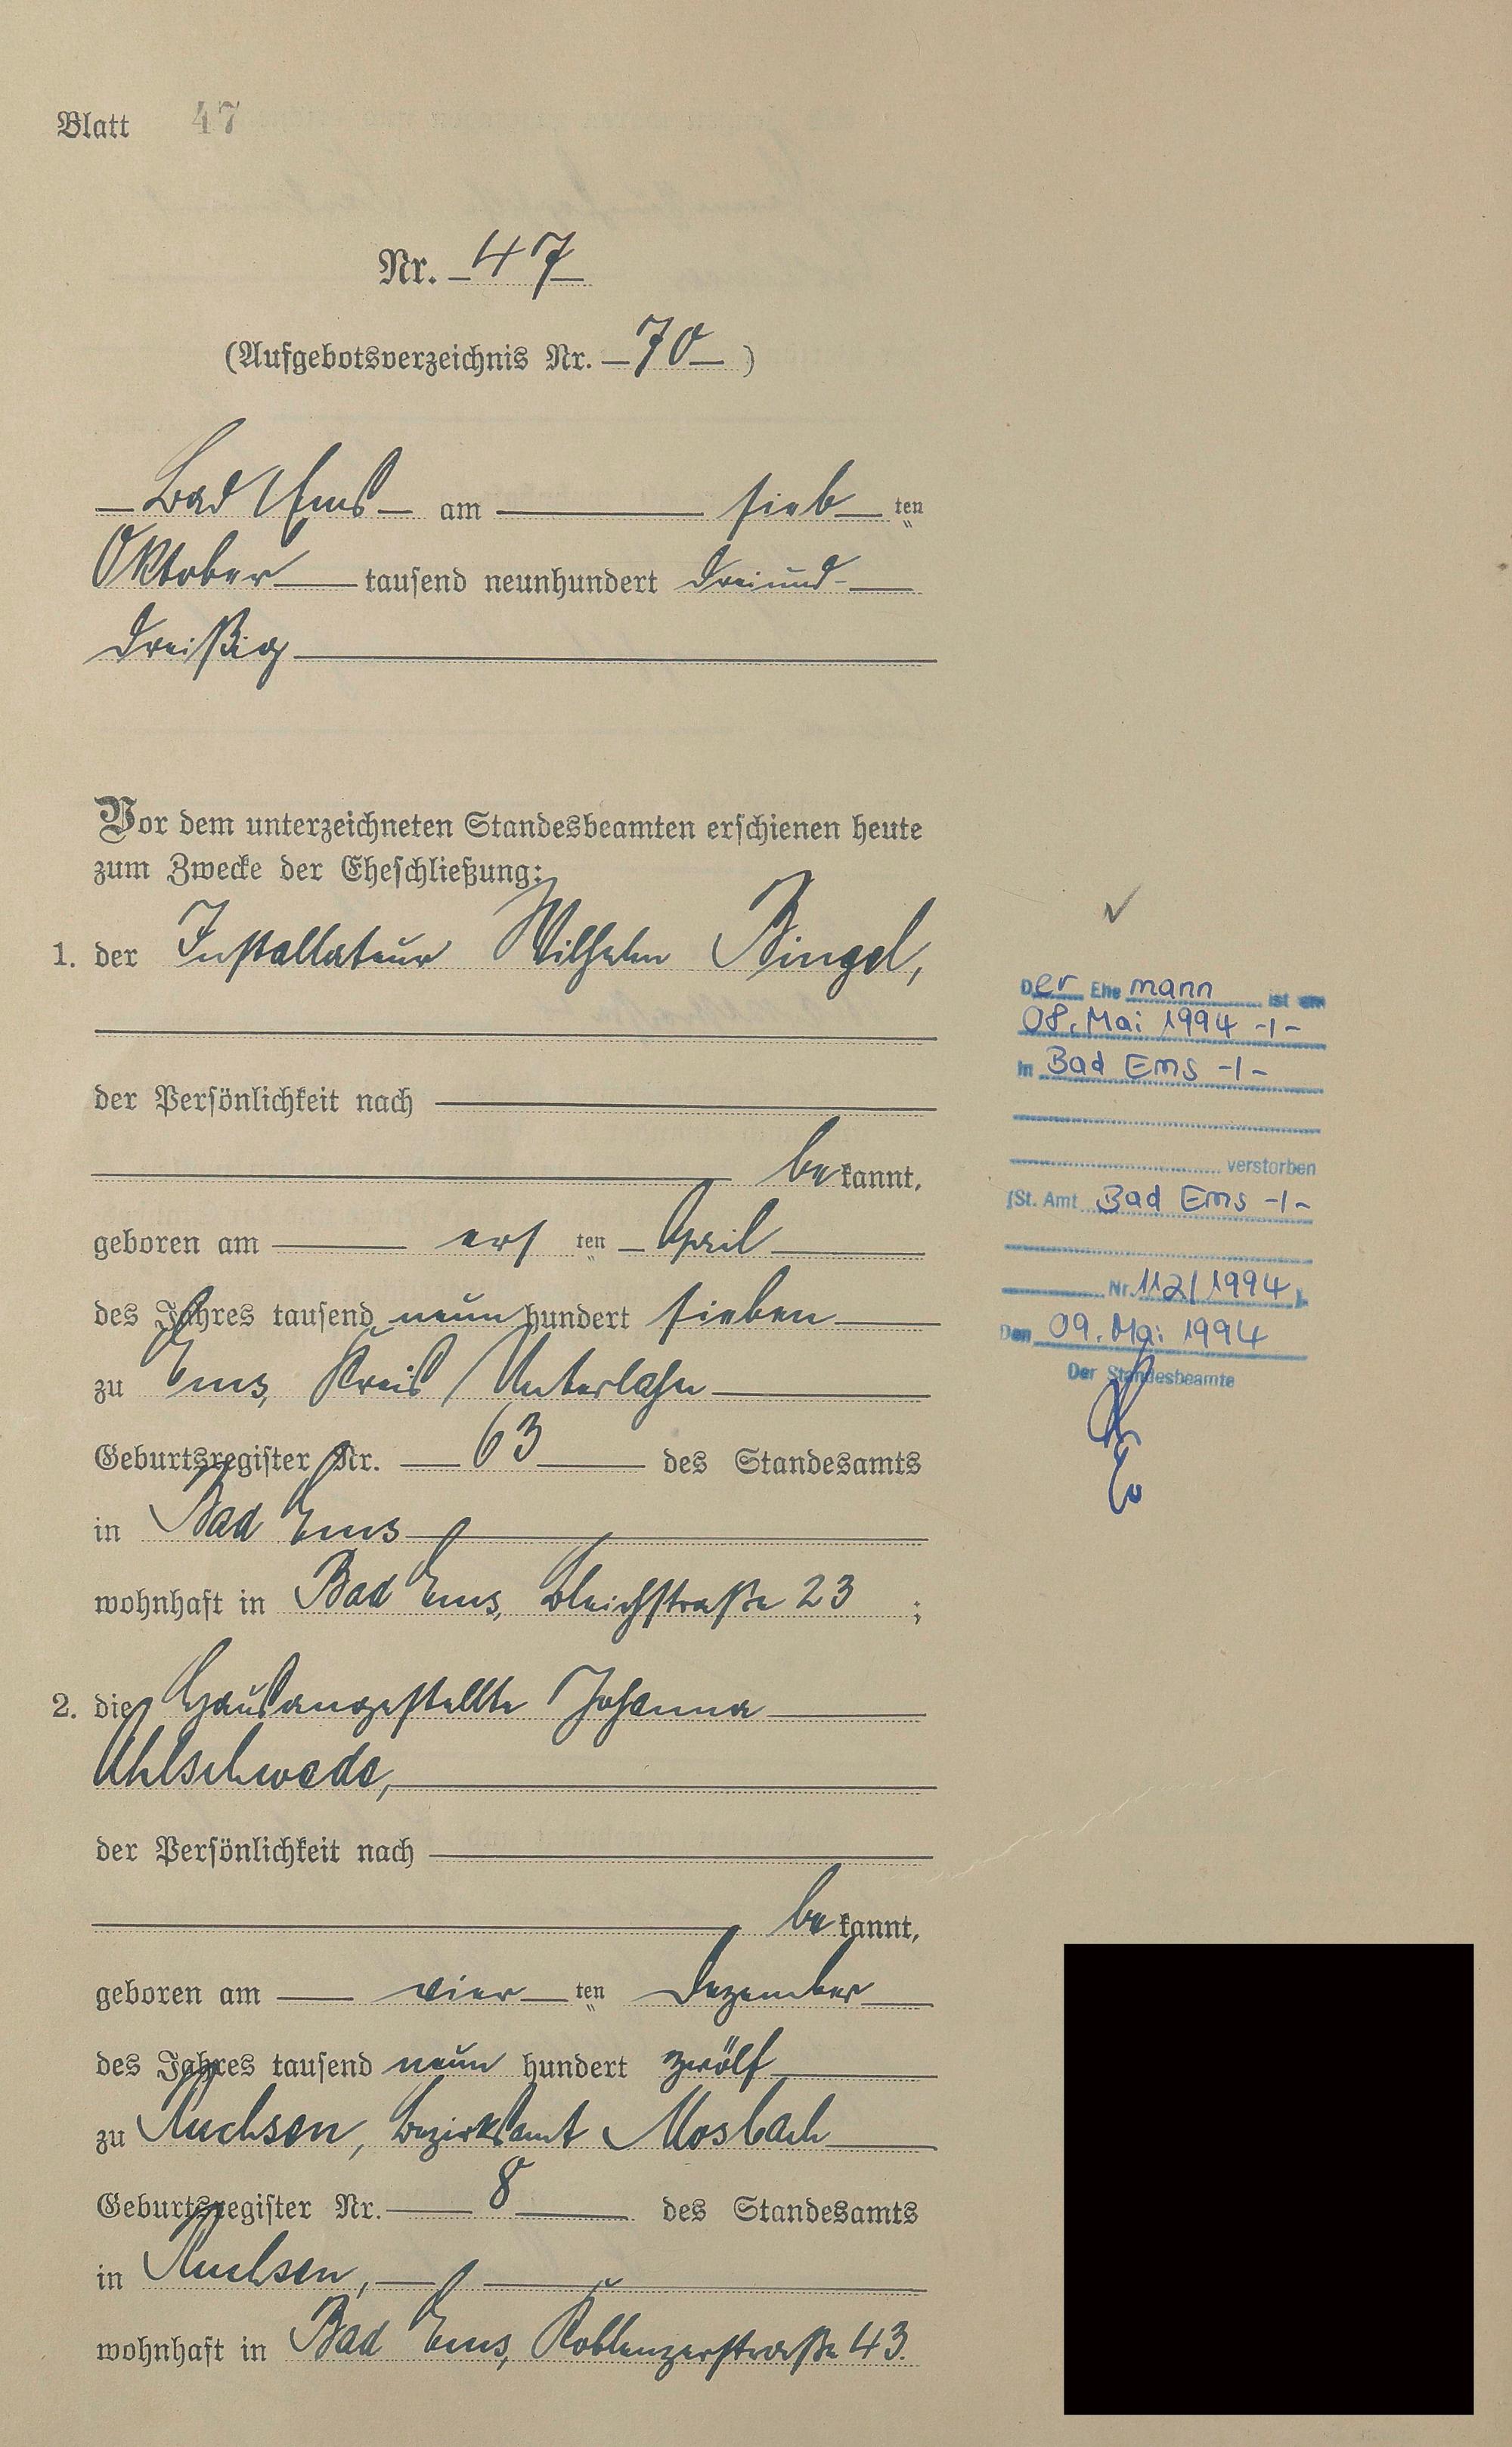 Blatt 47
Nr. 47
(Aufgebotsverzeichnis Nr. 70)
Bad Ems am sieb ten
Oktober tausend neunhundert dreiund-
dreißig
Vor dem unterzeichneten Standesbeamten erschienen heute
zum Zwecke der Eheschließung:
1. der Installateur Wilhelm Bingel,
der Persönlichkeit nach
be kannt,
geboren am ers ten April
des Jahres tausend neun hundert sieben
zu Ems, Kreis Unterlahn
Geburtsregister Nr. 63 des Standesamts
in Bad Ems
wohnhaft in Bad Ems, Bleichstraße 23 ;
2. die Hausangestellte Johanna
Uhlschwede,
der Persönlichkeit nach
be kannt,
geboren am vier ten Dezember
des Jahres tausend neun hundert zwölf
zu Ruchsen, Bezirksamt Mosbach
Geburtsregister Nr. 8 des Standesamts
in Ruchsen,
wohnhaft in Bad Ems, Koblenzerstraße 43.
Der Ehe mann ist am
08. Mai 1994 -/-
in Bad Ems -/-
verstorben
(St. Amt Bad Ems -/-
Nr. 112/1994)
Den 09. Mai 1994
Der Standesbeamte